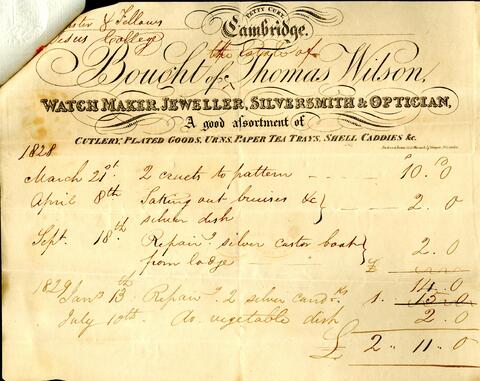 PETTY CURY,
Cambridge.
& Fellows
College
the Estate of
Bought of Thomas Wilson,
WATCH MAKER, JEWELLER, SILVERSMITH & OPTICIAN,
A good assortment of
CUTLERY, PLATED GOODS, URNS, PAPER TEA TRAYS, SHELL CADDIES &c.
1828
March 21st. 2 cruets to pattern 10. 0
April 8th Taking out bruises &c
silver dish 2. 0
Sept. 18th. Repairg. silver castor boat
from lodge 2. 0
£ 14. 0
1829
Jany 13th Repairg. 2 silver candks 1. 15. 0
July 10th. Do. vegetable dish 2. 0
£ 2 11. 0